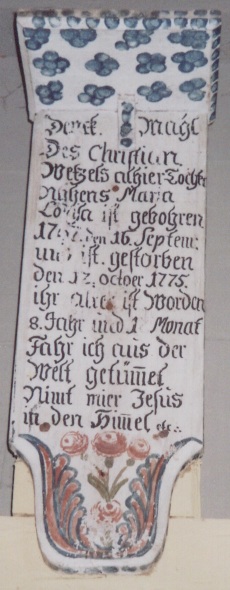 Denck. Mahl
Des Christian
Wetzels alhier Tochter
Nahens Maria
Lovisa ist gebohren
den 16. Septem:
und ist gestorben
den 12. octoer 1775.
ihr Alter ist Worden
8. Jahr und 1 Monat
Fahr ich aus der
Welt getümmel
Nimt mier Jesus
in den Himel etc.